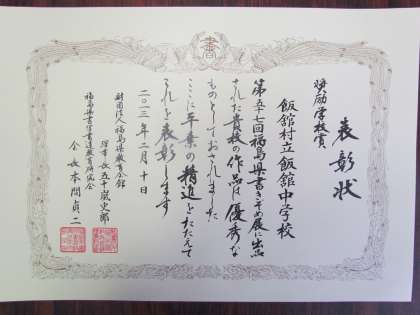 書
表彰状
奨励学校賞
飯舘村立飯舘中学校
第五十七回福島県書きぞめ展に出品
された貴校の作品は優秀な
ものとしておされました
ここに平素の精進をたたえて
これを表彰します
二〇一三年二月十日
財団法人福島県教育会館
理事長五十嵐史郎
福島県書写書道教育研究会
会長本間貞二